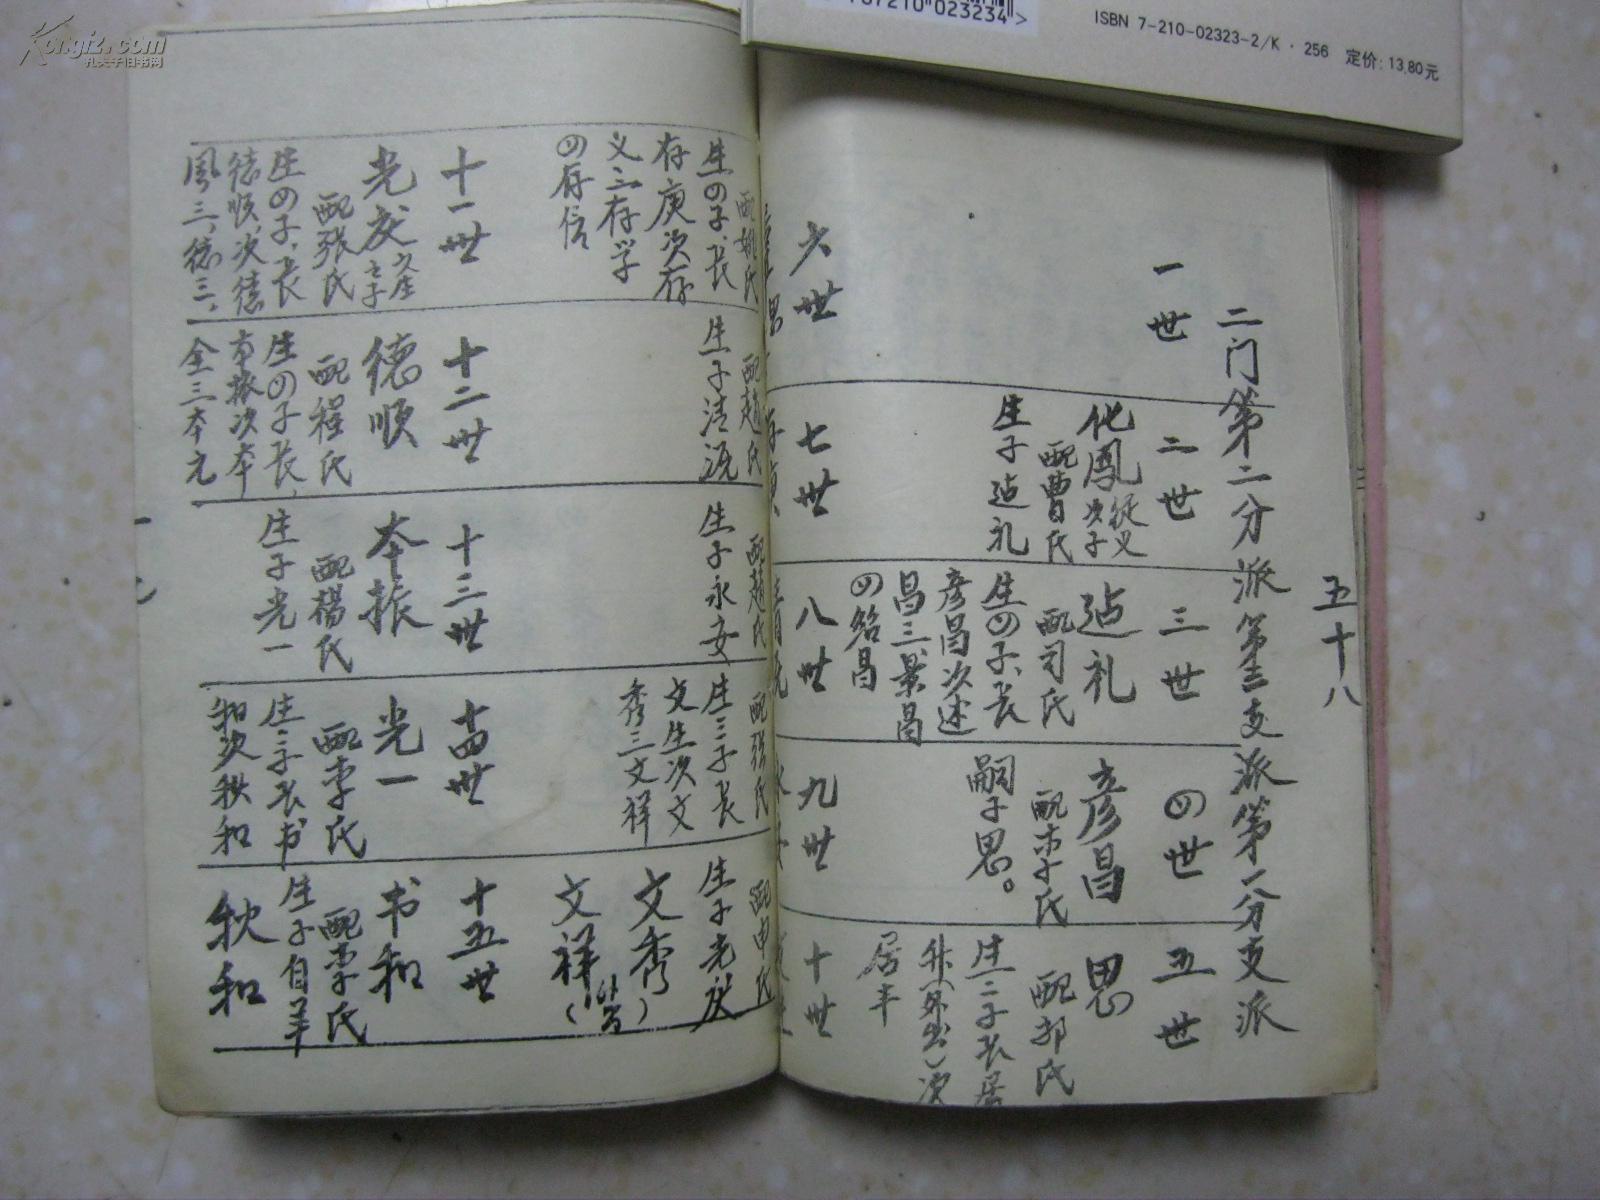 Kongfz.com
孔夫子旧书网
787210"023234>
ISBN 7-210-02323-2/K·256 定价:13.80元
五十八
二门第二分派第三支派第一分支派
一世
二世
三世
四世
五世
化鳳
从义次子
配曹氏
生子迨礼
迨礼
配司氏
生四子、长
彦昌次述
昌三景昌
四铭昌
彦昌
配李氏
嗣子思。
思
配郭氏
生二子长居
升(外出)次
居丰
六世
七世
八世
九世
十世
配姚氏
生四子、长
存庚次存
义三存学
四存信
配赵氏
生子清源
配赵氏
生子永安
配张氏
生三子长
文生次文
秀三文祥
配申氏
生子光庆
文秀
文祥
十一世
十二世
十三世
十四世
十五世
配張氏
生四子、长
德順、次德
風三、德三、
德順
配程氏
生四子长、
本振次本
全三本元
本振
配楊氏
生子光一
光一
配李氏
生二子长书
和次秋和
书和
配李氏
生子自羊
秋和